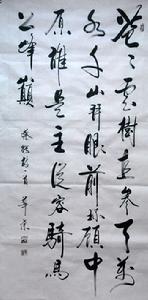 蒼々雲樹直參天萬
水千山拜眼前環顧中
原誰是主從容騎馬
上峰巔